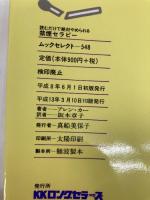 読むだけで絶対やめられる
禁煙セラピー
ムックセレクト―548
定価(本体900円+税)
検印廃止
平成8年6月1日初版発行
平成13年3月10日10刷発行
著者―アレン・カー
訳者―阪本章子
発行者―真船美保子
印刷所―太陽印刷
製本所―鶴波製本
発行所
KKロングセラーズ